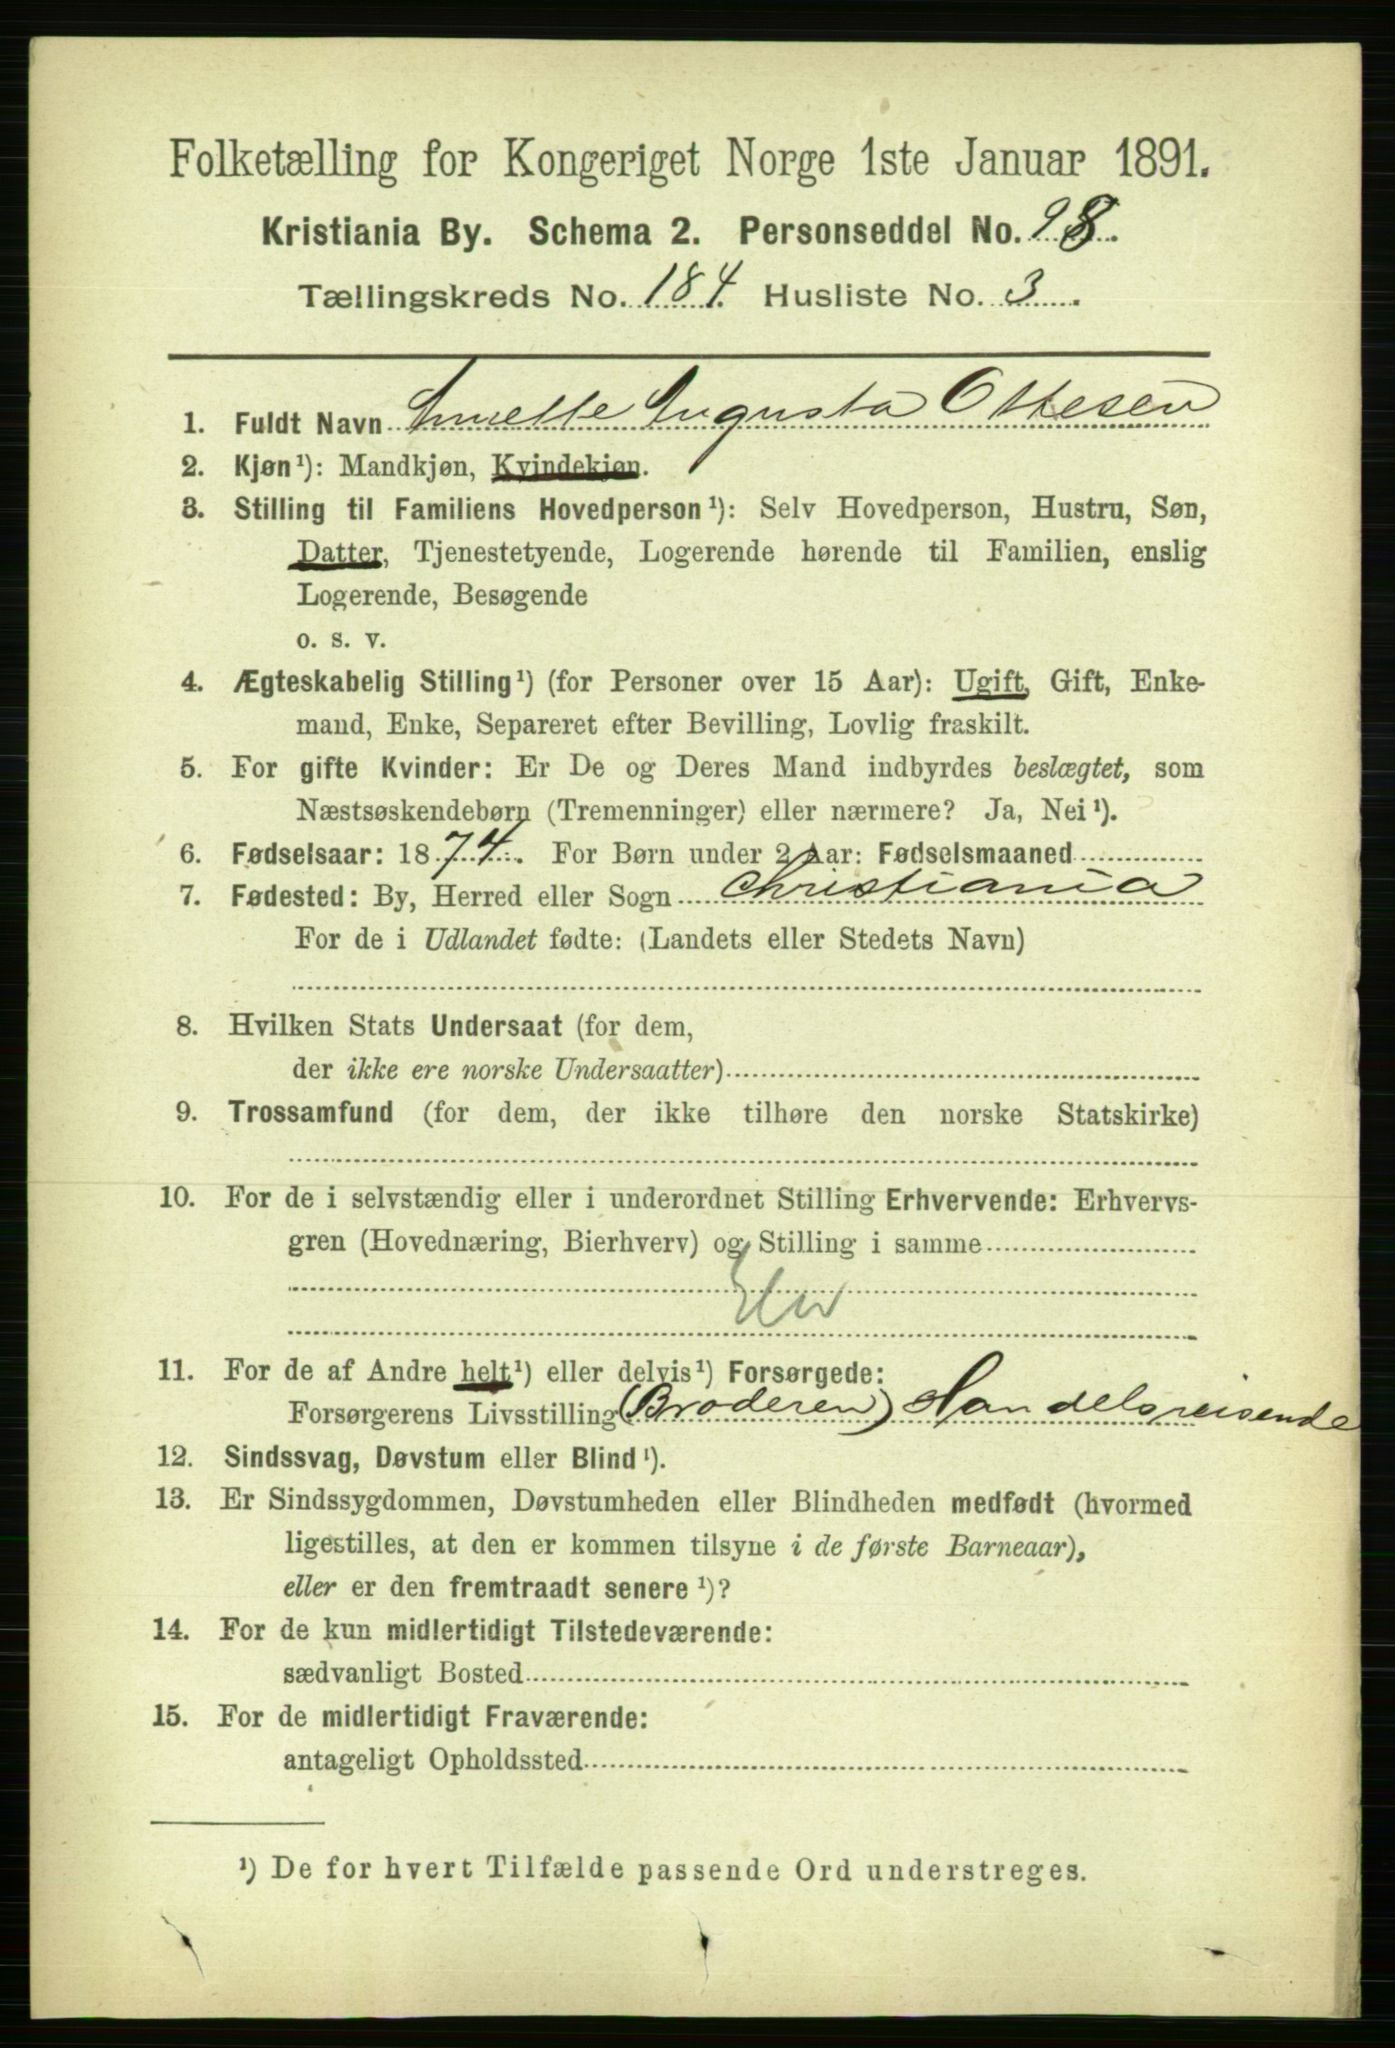 Folketælling for Kongeriget Norge 1ste Januar 1891.
Kristiania By. Schema 2. Personseddel No. 98.
Tællingskreds No. 184. Husliste No. 3.
1. Fuldt Navn Augusta Ottesen
2. Kjøn¹): Mandkjøn, Kvindekjøn.
3. Stilling til Familiens Hovedperson¹): Selv Hovedperson, Hustru, Søn,
Datter, Tjenestetyende, Logerende hørende til Familien, enslig
Logerende, Besøgende
o. s. v.
4. Ægteskabelig Stilling¹) (for Personer over 15 Aar): Ugift, Gift, Enke-
mand, Enke, Separeret efter Bevilling, Lovlig fraskilt.
5. For gifte Kvinder: Er De og Deres Mand indbyrdes beslægtet, som
Næstsøskendebørn (Tremenninger) eller nærmere? Ja, Nei¹).
6. Fødselsaar: 1874. For Børn under 2 Aar: Fødselsmaaned
7. Fødested: By, Herred eller Sogn Christiania
For de i Udlandet fødte: (Landets eller Stedets Navn)
8. Hvilken Stats Undersaat (for dem,
der ikke ere norske Undersaatter)
9. Trossamfund (for dem, der ikke tilhøre den norske Statskirke)
10. For de i selvstændig eller i underordnet Stilling Erhvervende: Erhvervs-
gren (Hovednæring, Bierhverv) og Stilling i samme
11. For de af Andre helt¹) eller delvis¹) Forsørgede:
Forsørgerens Livsstilling (Broderen) Handelsreisende
12. Sindssvag, Døvstum eller Blind¹).
13. Er Sindssygdommen, Døvstumheden eller Blindheden medfødt (hvormed
ligestilles, at den er kommen tilsyne i de første Barneaar),
eller er den fremtraadt senere¹)?
14. For de kun midlertidigt Tilstedeværende:
sædvanligt Bosted
15. For de midlertidigt Fraværende:
antageligt Opholdssted
¹) De for hvert Tilfælde passende Ord understreges.